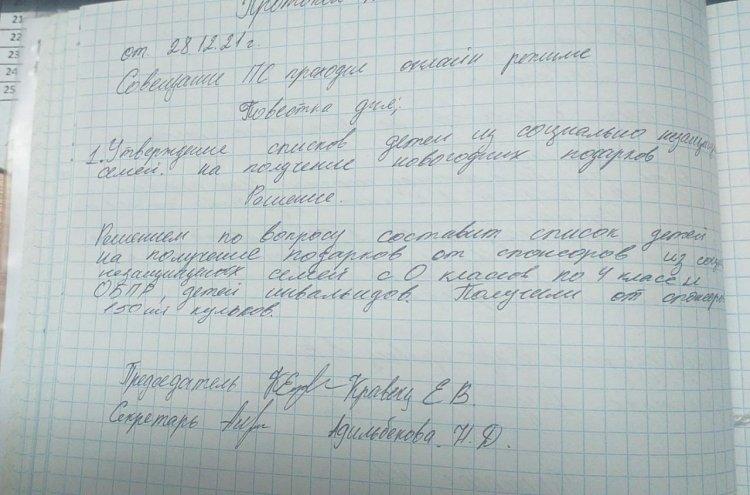 21
22
23
24
25
Протокол
от 28.12.21г.
Совещание ПС проходил онлайн режиме
Повестка дня;
1. Утверждение списков детей из социально незащищ
семей. на получение новогодних подарков
Решение.
Решением по вопросу составит список детей
на получение подарков от спонсоров из соц
незащищиных семей с 0 классов по 4 класс и
ОБПР, детей инвалидов. Получили от спонсоров
150 шт кульков.
Председатель Кравец Е В.
Секретарь Адильбекова. Н. Д.